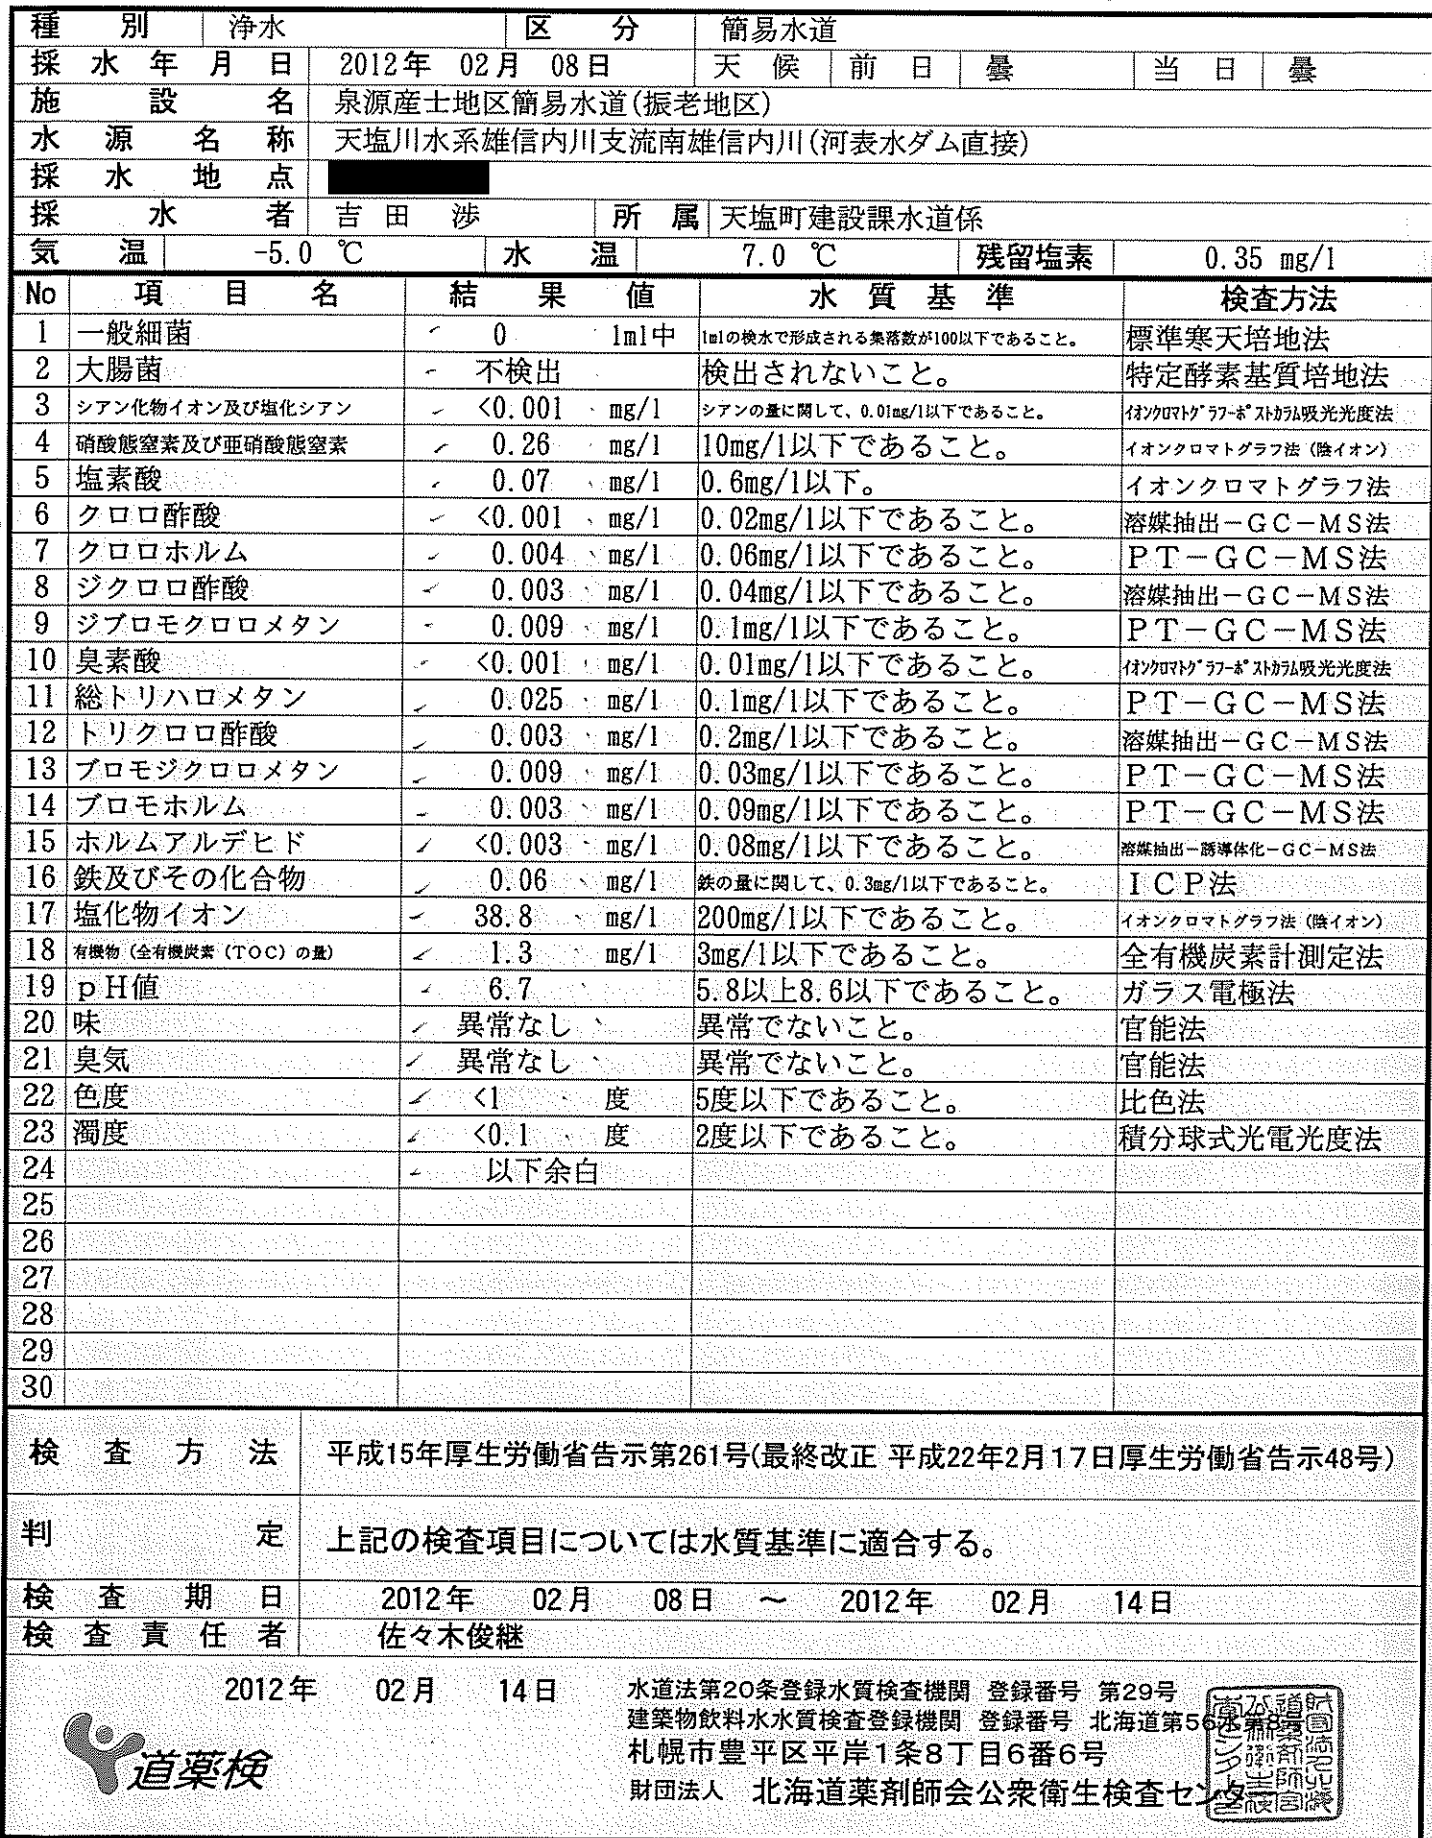 種別 浄水 区分 簡易水道
採水年月日 2012年 02月 08日 天候 前日 曇 当日 曇
施設名 泉源産士地区簡易水道(振老地区)
水源名称 天塩川水系雄信内川支流南雄信内川(河表水ダム直接)
採水地点
採水者 吉田 渉 所属 天塩町建設課水道係
気温 -5.0 ℃ 水温 7.0 ℃ 残留塩素 0.35 mg/l
No 項目名 結果値 水質基準 検査方法
1 一般細菌 0 1ml中 1mlの検水で形成される集落数が100以下であること。 標準寒天培地法
2 大腸菌 不検出 検出されないこと。 特定酵素基質培地法
3 シアン化物イオン及び塩化シアン <0.001 mg/l シアンの量に関して、0.01mg/l以下であること。 イオンクロマトグラフーポストカラム吸光光度法
4 硝酸態窒素及び亜硝酸態窒素 0.26 mg/l 10mg/l以下であること。 イオンクロマトグラフ法(陰イオン)
5 塩素酸 0.07 mg/l 0.6mg/l以下。 イオンクロマトグラフ法
6 クロロ酢酸 <0.001 mg/l 0.02mg/l以下であること。 溶媒抽出－GC－MS法
7 クロロホルム 0.004 mg/l 0.06mg/l以下であること。 PT－GC－MS法
8 ジクロロ酢酸 0.003 mg/l 0.04mg/l以下であること。 溶媒抽出－GC－MS法
9 ジブロモクロロメタン 0.009 mg/l 0.1mg/l以下であること。 PT－GC－MS法
10 臭素酸 <0.001 mg/l 0.01mg/l以下であること。 イオンクロマトグラフーポストカラム吸光光度法
11 総トリハロメタン 0.025 mg/l 0.1mg/l以下であること。 PT－GC－MS法
12 トリクロロ酢酸 0.003 mg/l 0.2mg/l以下であること。 溶媒抽出－GC－MS法
13 ブロモジクロロメタン 0.009 mg/l 0.03mg/l以下であること。 PT－GC－MS法
14 ブロモホルム 0.003 mg/l 0.09mg/l以下であること。 PT－GC－MS法
15 ホルムアルデヒド <0.003 mg/l 0.08mg/l以下であること。 溶媒抽出－誘導体化－GC－MS法
16 鉄及びその化合物 0.06 mg/l 鉄の量に関して、0.3mg/l以下であること。 ICP法
17 塩化物イオン 38.8 mg/l 200mg/l以下であること。 イオンクロマトグラフ法(陰イオン)
18 有機物(全有機炭素(TOC)の量) 1.3 mg/l 3mg/l以下であること。 全有機炭素計測定法
19 pH値 6.7 5.8以上8.6以下であること。 ガラス電極法
20 味 異常なし 異常でないこと。 官能法
21 臭気 異常なし 異常でないこと。 官能法
22 色度 <1 度 5度以下であること。 比色法
23 濁度 <0.1 度 2度以下であること。 積分球式光電光度法
24 以下余白
25
26
27
28
29
30
検査方法 平成15年厚生労働省告示第261号(最終改正 平成22年2月17日厚生労働省告示48号)
判定 上記の検査項目については水質基準に適合する。
検査期日 2012年 02月 08日 ～ 2012年 02月 14日
検査責任者 佐々木俊継
2012年 02月 14日
水道法第20条登録水質検査機関 登録番号 第29号
建築物飲料水水質検査登録機関 登録番号 北海道第56水第8号
札幌市豊平区平岸1条8丁目6番6号
財団法人 北海道薬剤師会公衆衛生検査センター
道薬検